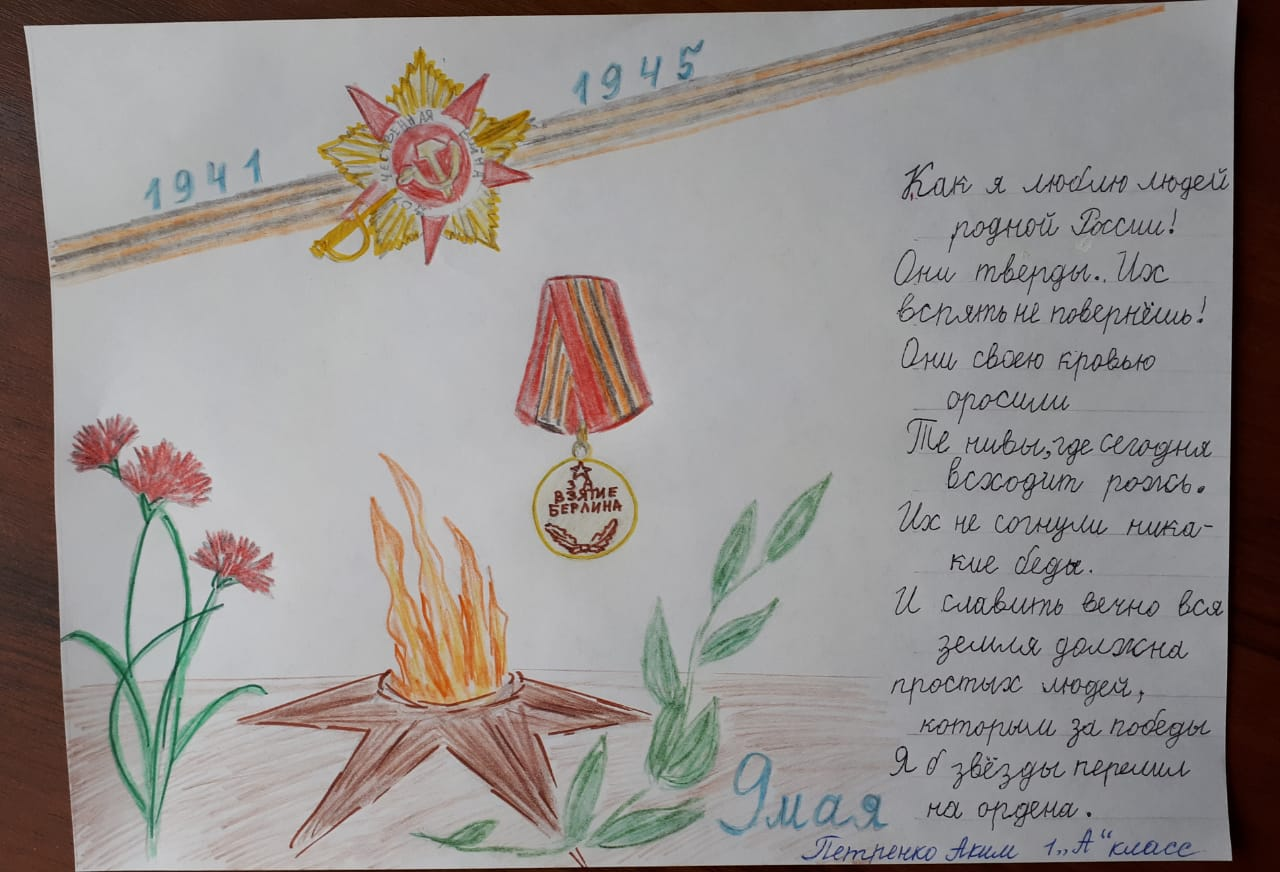 1941
1945
ОТЕЧЕСТВЕННАЯ ВОЙНА
ЗА
ВЗЯТИЕ
БЕРЛИНА
Как я люблю людей
родной России!
Они тверды.. Их
вспять не повернёшь!
Они своею кровью
оросили
Те нивы, где сегодня
всходит рожь.
Их не согнули ника-
кие беды.
И славить вечно вся
земля должна
простых людей,
которым за победы
Я б звёзды перелил
на ордена.
9 мая
Петренко Аким 1 „А“ класс